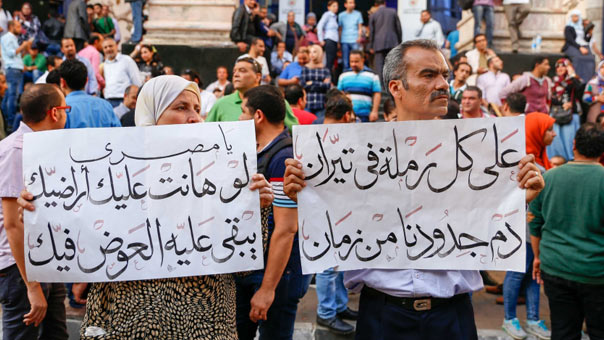 يا مصرى
لو هانت عليك أراضيك
يبقى عليه العوض فيك
على كل رملة فى تيران
دم جدودنا من زمان